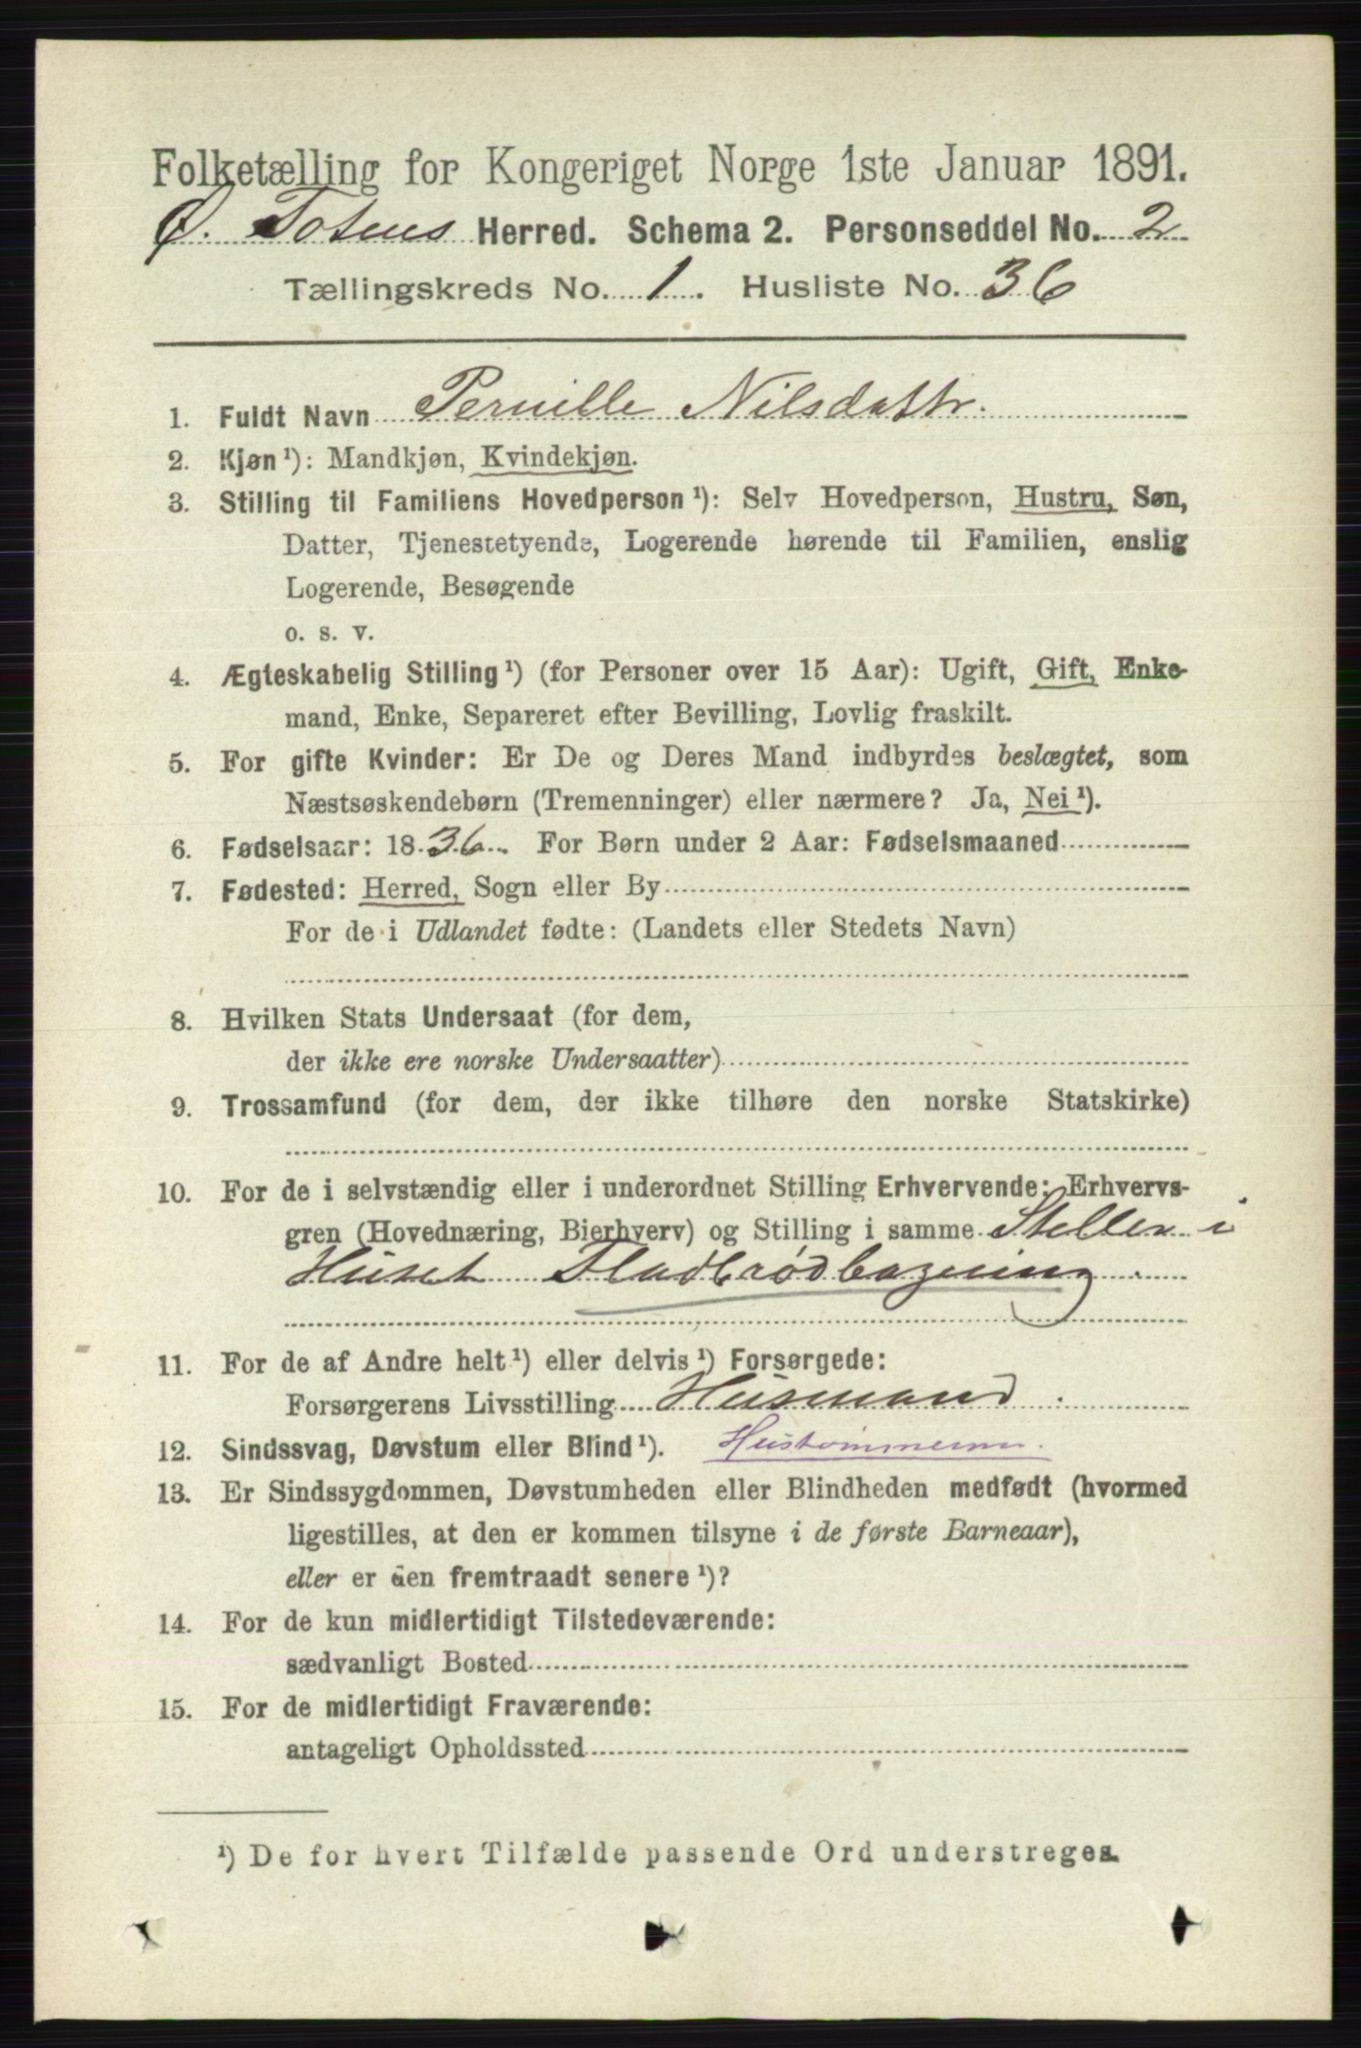 Folketælling for Kongeriget Norge 1ste Januar 1891.
Ø. Totens Herred. Schema 2. Personseddel No. 2
Tællingskreds No. 1. Husliste No. 36
1. Fuldt Navn Pernille Nilsdattr.
2. Kjøn¹): Mandkjøn, Kvindekjøn.
3. Stilling til Familiens Hovedperson¹): Selv Hovedperson, Hustru, Søn,
Datter, Tjenestetyende, Logerende hørende til Familien, enslig
Logerende, Besøgende
o. s. v.
4. Ægteskabelig Stilling¹) (for Personer over 15 Aar): Ugift, Gift, Enke-
mand, Enke, Separeret efter Bevilling, Lovlig fraskilt.
5. For gifte Kvinder: Er De og Deres Mand indbyrdes beslægtet, som
Næstsøskendebørn (Tremenninger) eller nærmere? Ja, Nei¹).
6. Fødselsaar: 1836. For Børn under 2 Aar: Fødselsmaaned
7. Fødested: Herred, Sogn eller By
For de i Udlandet fødte: (Landets eller Stedets Navn)
8. Hvilken Stats Undersaat (for dem,
der ikke ere norske Undersaatter)
9. Trossamfund (for dem, der ikke tilhøre den norske Statskirke)
10. For de i selvstændig eller i underordnet Stilling Erhvervende: Erhvervs-
gren (Hovednæring, Bierhverv) og Stilling i samme Steller i
Huset Fladbrødbagning.
11. For de af Andre helt¹) eller delvis¹) Forsørgede:
Forsørgerens Livsstilling Husmand.
12. Sindssvag, Døvstum eller Blind¹). Hustømmerm.
13. Er Sindssygdommen, Døvstumheden eller Blindheden medfødt (hvormed
ligestilles, at den er kommen tilsyne i de første Barneaar),
eller er den fremtraadt senere¹)?
14. For de kun midlertidigt Tilstedeværende:
sædvanligt Bosted
15. For de midlertidigt Fraværende:
antageligt Opholdssted
¹) De for hvert Tilfælde passende Ord understreges.